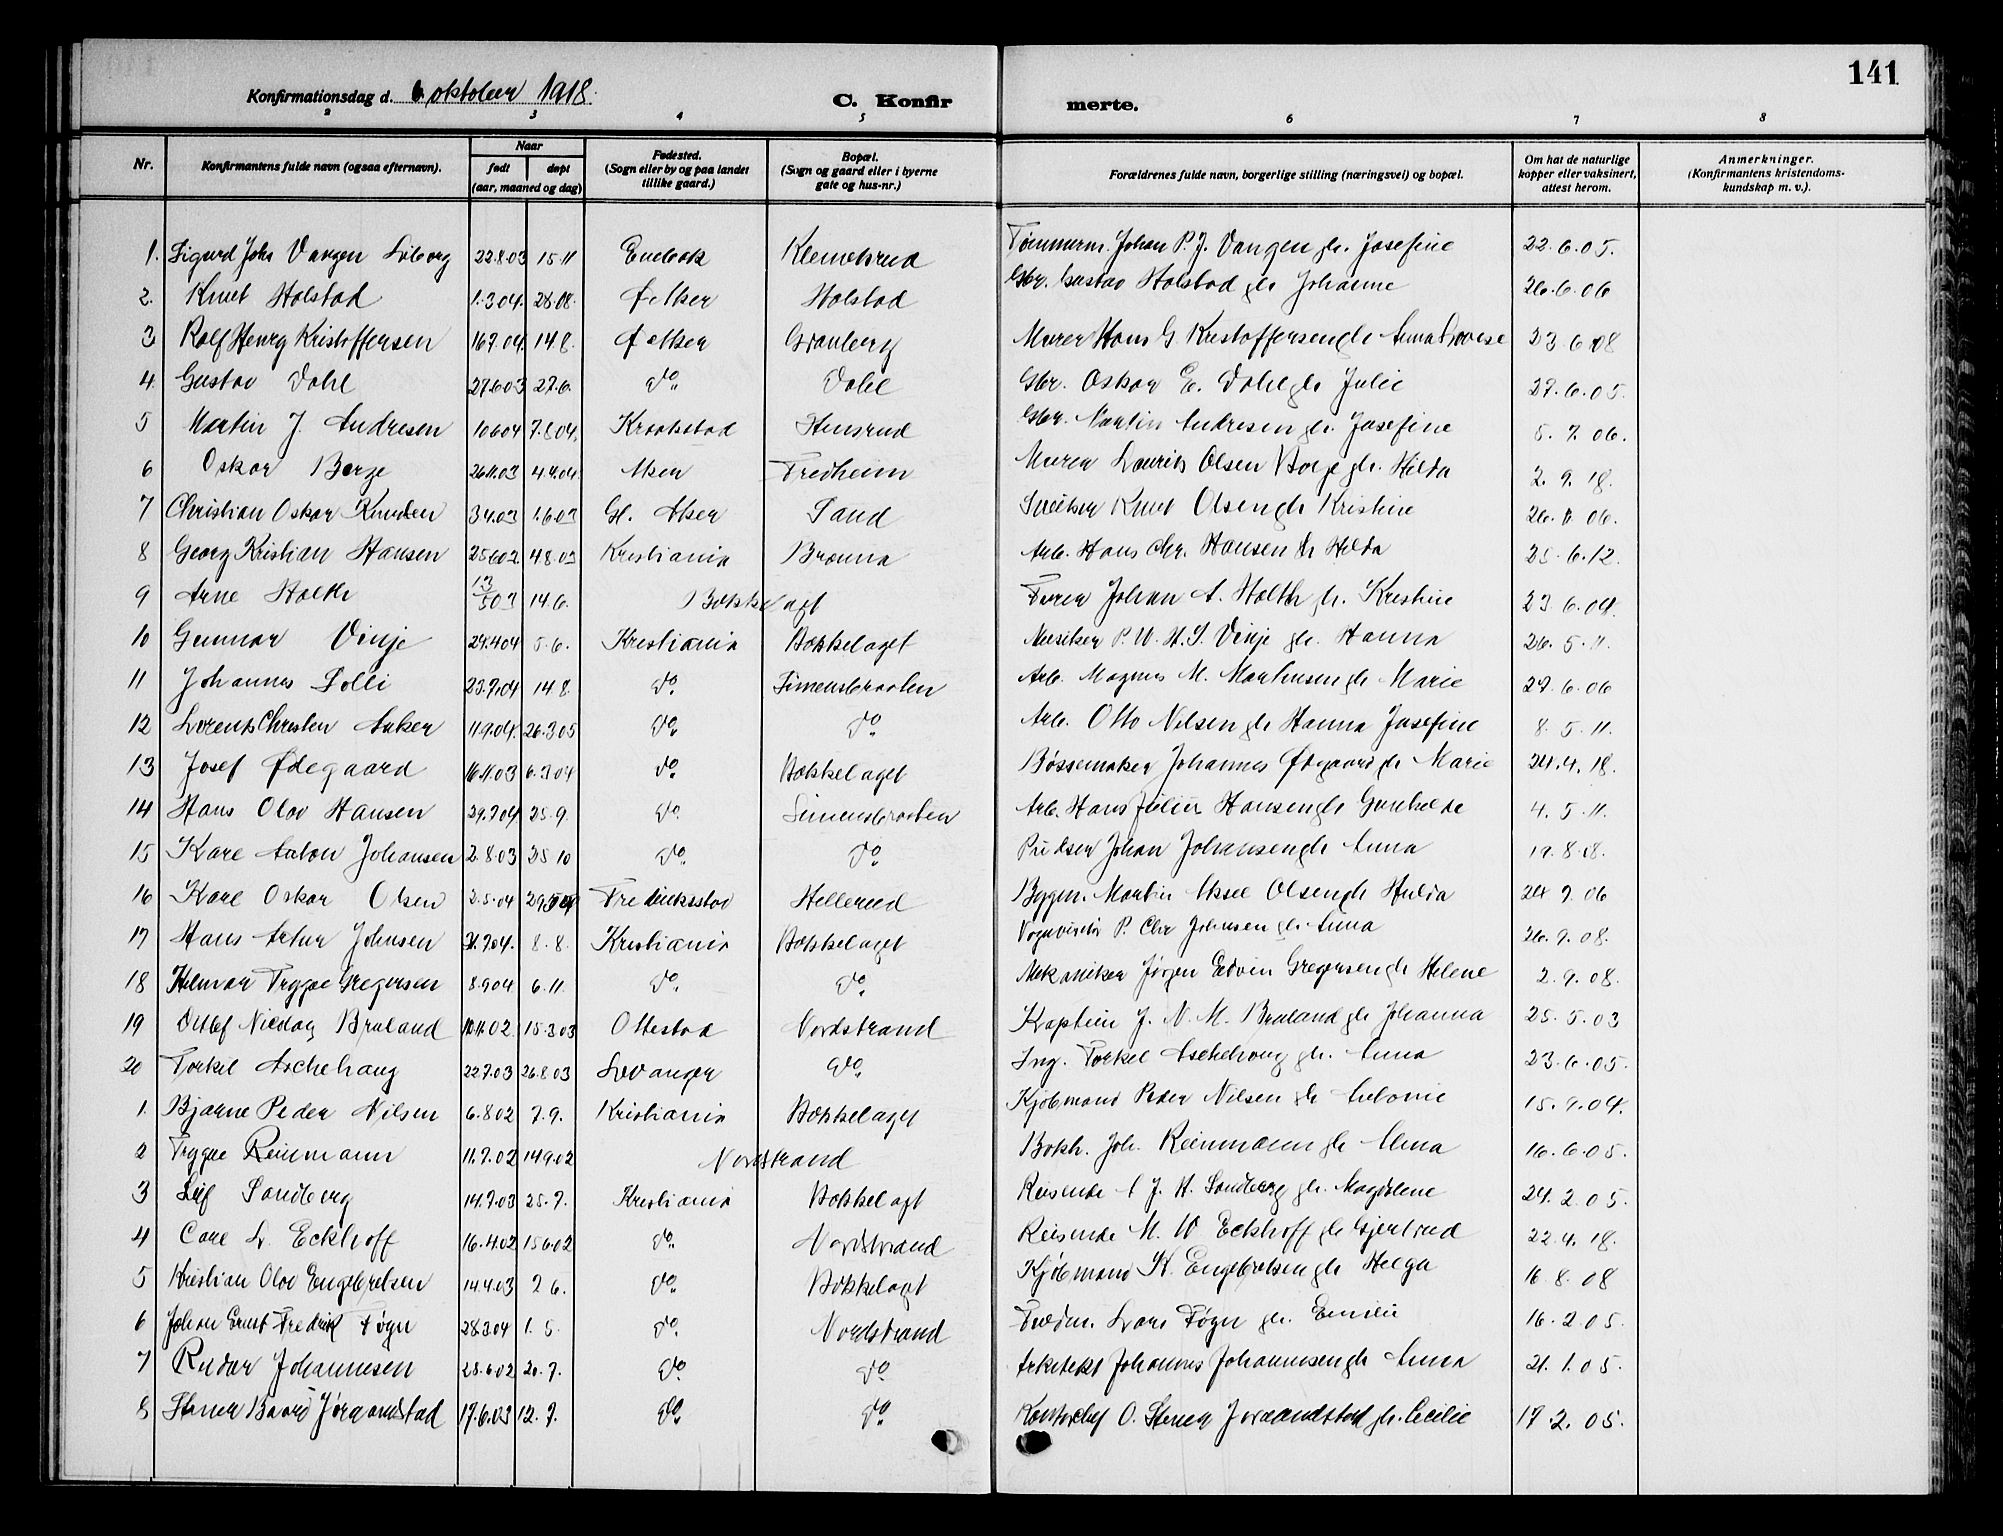 141
Konfirmationsdag d. 6 oktober 1918.
C. Konfir
merte.
2 3 4 5 6 7 8
Nr. Konfirmantens fulde navn (ogsaa efternavn). Naar født døpt (aar, maaned og dag) Fødested. (Sogn eller by og paa landet tillike gaard.) Bopæl. (Sogn og gaard eller i byerne gate og hus-nr.) Forældrenes fulde navn, borgerlige stilling (næringsvei) og bopæl. Om hat de naturlige kopper eller vaksinert, attest herom. Anmerkninger. (Konfirmantens kristendoms-kundskap m. v.).
1. Sigurd Johs Vangen 22.8.03 15.11 Enebak Klemetsrud Tømmerm. Johan P. J. Vangen gh. Josefine 22.6.05.
2. Knut Holstad 1.3.04. 28.08. Ø. Aker Holstad Gbr. Gustav Holstad gh Johanne 26.6.06
3 Rolf Henry Kristoffersen 16.7.04. 14.8. Ø. Aker Granberg Murer Hans G. Kristoffersen gh Anna Lovise 23.6.08
4. Gustav Dahl 27.6.03 27.6. do. Dahl Gbr. Oskar E. Dahl gh Julie 27.6.05.
5 Martin J. Andresen 10.6.04 7.8.04. Kraakstad Stensrud Gbr. Martin Andresen gh. Josefine 5.7.06.
6 Oskar Borge 26.11.03 4.4.04. Aker Fredheim Murer Laurits Olsen Borge gh. Hilda 2.9.18.
7 Christian Oskar Knudsen 3.4.03 1.6.03 Gl. Aker Sand Snekker Knut Olsen gh Kristine 06.
8 Georg Kristian Hansen 25.6.02. 4.8.03 Kristiania Brenna Arb. Hans Chr. Hansen gh Hilda 25.6.12.
9 Arne Holth 13/5 03 14.6. Bækkelaget Johan A. Holth gh. Kristine 23.6.04.
10 Gunnar Vinje 29.4.04 5.6. Kristiania Bækkelaget Musiker P. W. H. S. Vinje gh. Hanna 26.5.11.
11 Johannes Solli 23.7.04 14.8. do. Simensbraaten Arb. Magnus M. Marhusen gh Marie 27.6.06
12 Lorents Christen Anker 11.9.04. 26.3.05 do. do. Arb. Otto Nilsen gh Hanna Josefine 8.5.11.
13 Josef Ødegaard 16.11.03 6.3.04 do. Bækkelaget Bøssemaker Johannes Ødegaard gh Marie 24.4.18.
14 Hans Olav Hansen 29.7.04 25.9. do. Simensbraaten Arb. Hans Julius Hansen gh Gunhilde 4.5.11.
15 Kare Anton Johansen 2.8.03 25.10 do. do. Pudser Johan Johansen gh Anna 19.8.18.
16 Karl Oskar Olsen 2.5.04 Fredriksstad Hellerud Bygm. Martin Aksel Olsen gh Hulda 24.9.06
17 Hans Artur Johnsen 31.7.04. 8.8. Kristiania Bækkelaget Vognvisitør P. Chr Johnsen gh. Anna 26.9.08.
18 Helmar Trygve Gregersen 8.9.04. 6.11. do. do. Mekaniker Jørgen Edvin Gregersen gh Helene 2.9.08.
19 Braland 10.11.02. 15.3.03 Ottestad Nordstrand Kaptein J. N. M. Braland gh Johanna 25.5.03
20 Torkil Aschehaug 22.7.03 26.8.03 Levanger do. Ing. Torkel Aschehoug gh. Anna 23.6.05.
1. Bjarne Peder Nilsen 6.8.02 7.9. Kristiania Bækkelaget Kjøbmand Peder Nilsen gh 15.9.04.
2 Trygve Reinmann 11.7.02 14.9.02 Nordstrand Bokh. Joh. Reinmann gh Alma 16.6.05.
3 Leif Sandberg 14.7.03 25.7. Kristiania Bækkelaget Reisende A J. H. Sandberg gh. Magdalene 24.2.05.
4 Carl L. Eckhoff 16.4.02 15.6.02 do. Nordstrand Reisende M. W Eckhoff gh Gjertrud 22.4.18.
5 Kristian Olav Engebretsen 14.4.03 2 6. do. Bækkelaget Kjøbmand K. Engebretsen gh Helga 16.8.08
6 Johan Ernst Fredrik Føgn 28.3.04 1.5. do. Nordstrand Fuldm. Lars Føgn gh. Emilie 16.2.05.
7 Reidar Johannesen 28.6.02 20.7. do. do. Arkitekt Johannes Johannesen gh Anna 21.1.05.
8 Stener Baard Jøraandstad 17.6.03 12.7. do. do. Kontorchef O. Stener Jøraandstad gh. Cecilie 17.2.05.